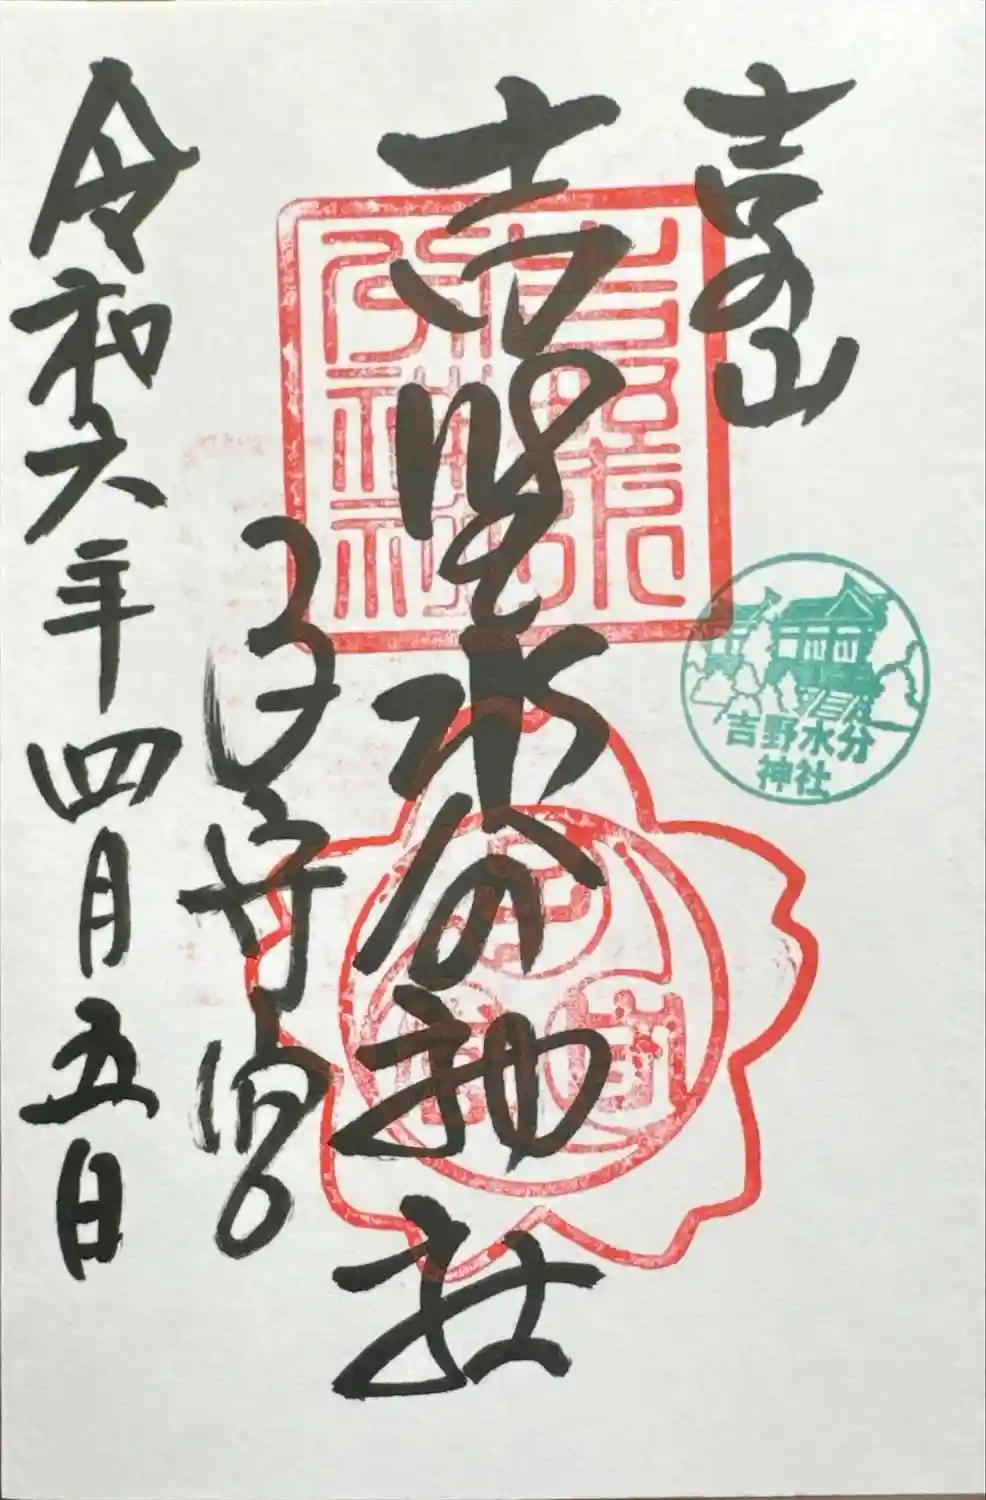 吉の山
吉野水分神社
子守宮
令和六年四月五日
吉野水
分神社
子守宮
吉野水分
神社